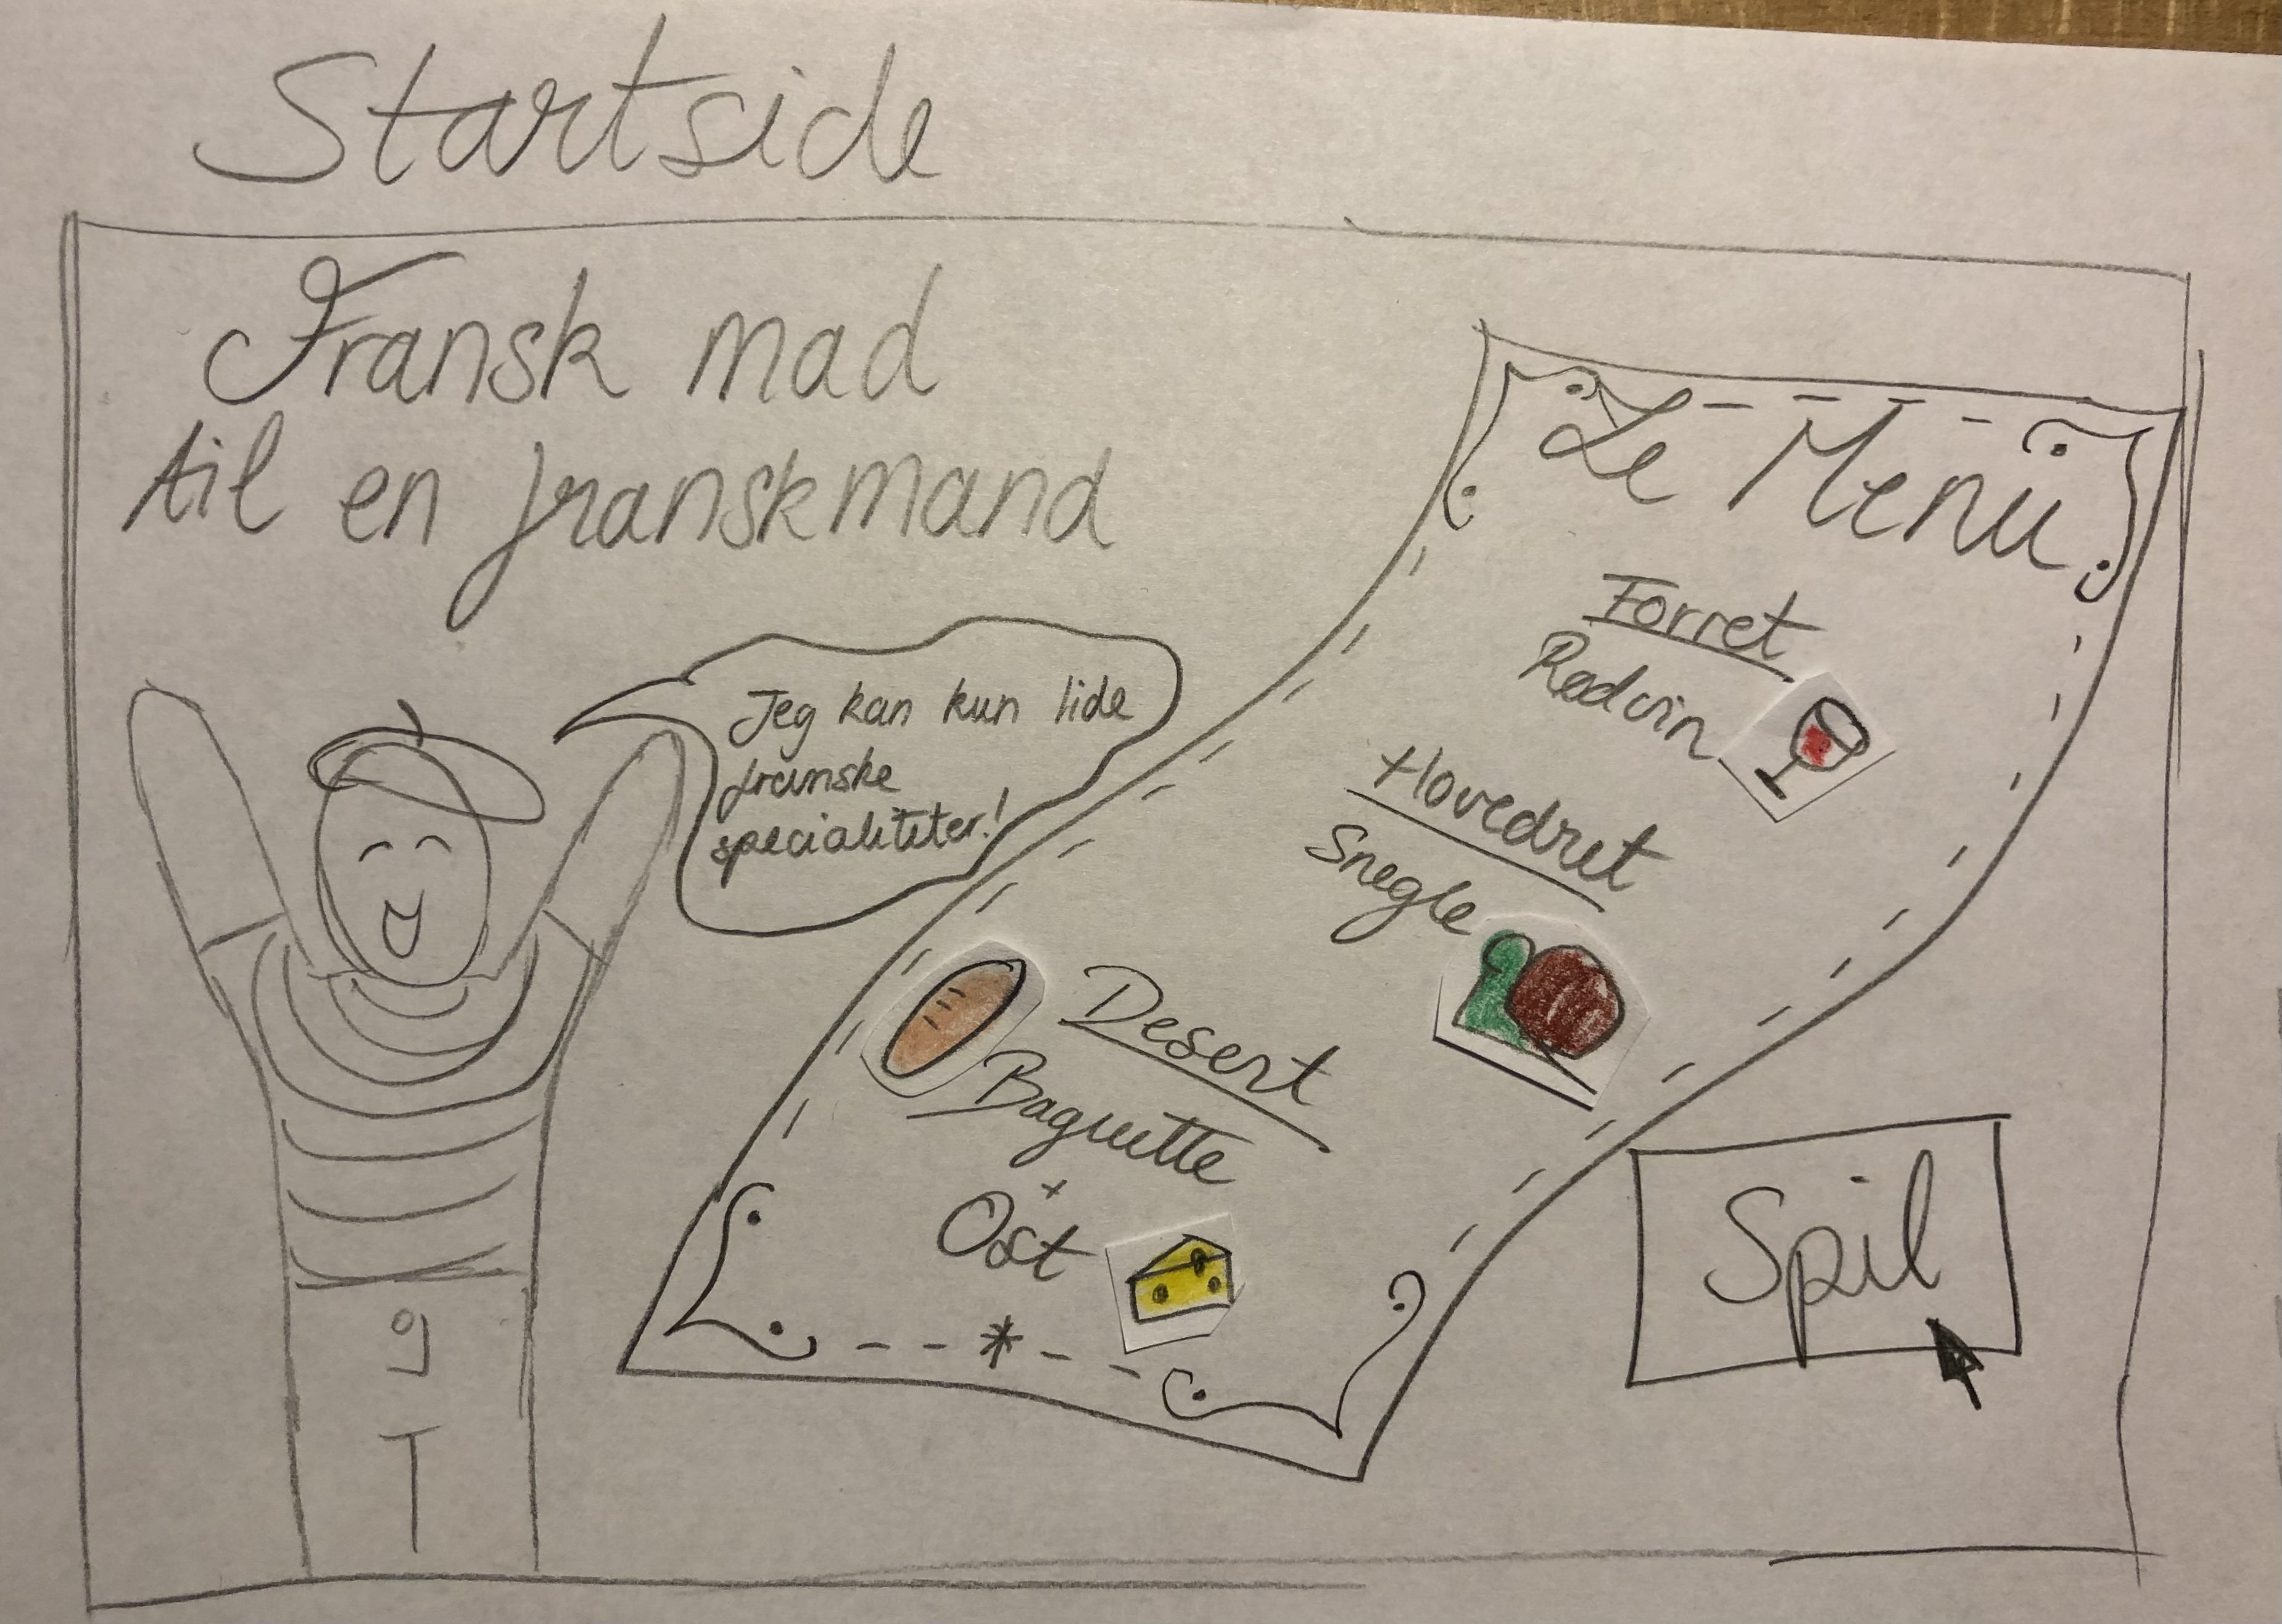 Startside
Fransk mad
til en franskmand
Jeg kan kun lide
franske
specialiteter!
Le Menu
Forret
Rødvin
Hovedret
Snegle
Desert
Baguette
+
Ost
Spil